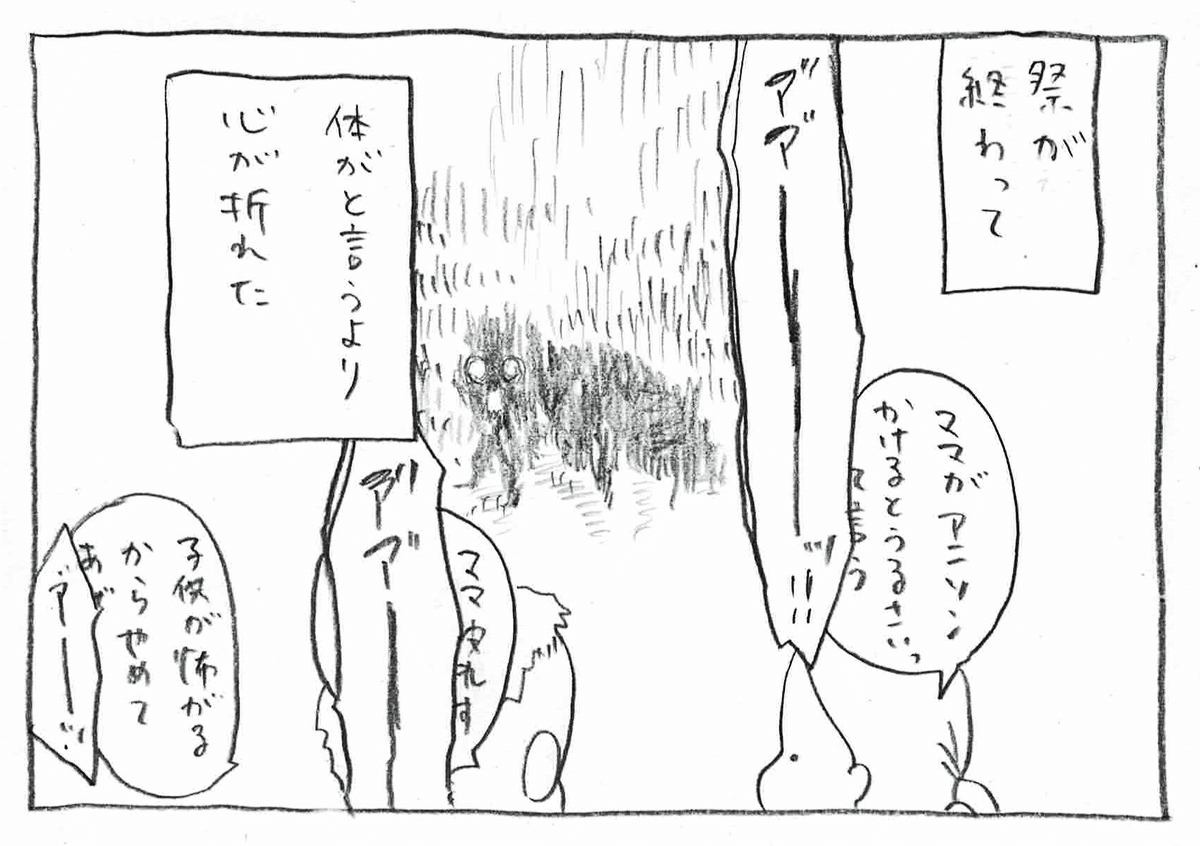 祭が
終わって
アアーーッ!!
ママがアニソン
かけるとうるさいっ
て言う
体がと言うより
心が折れた
アアー
ママ
子供が怖がる
からやめて
あが
アーーッ